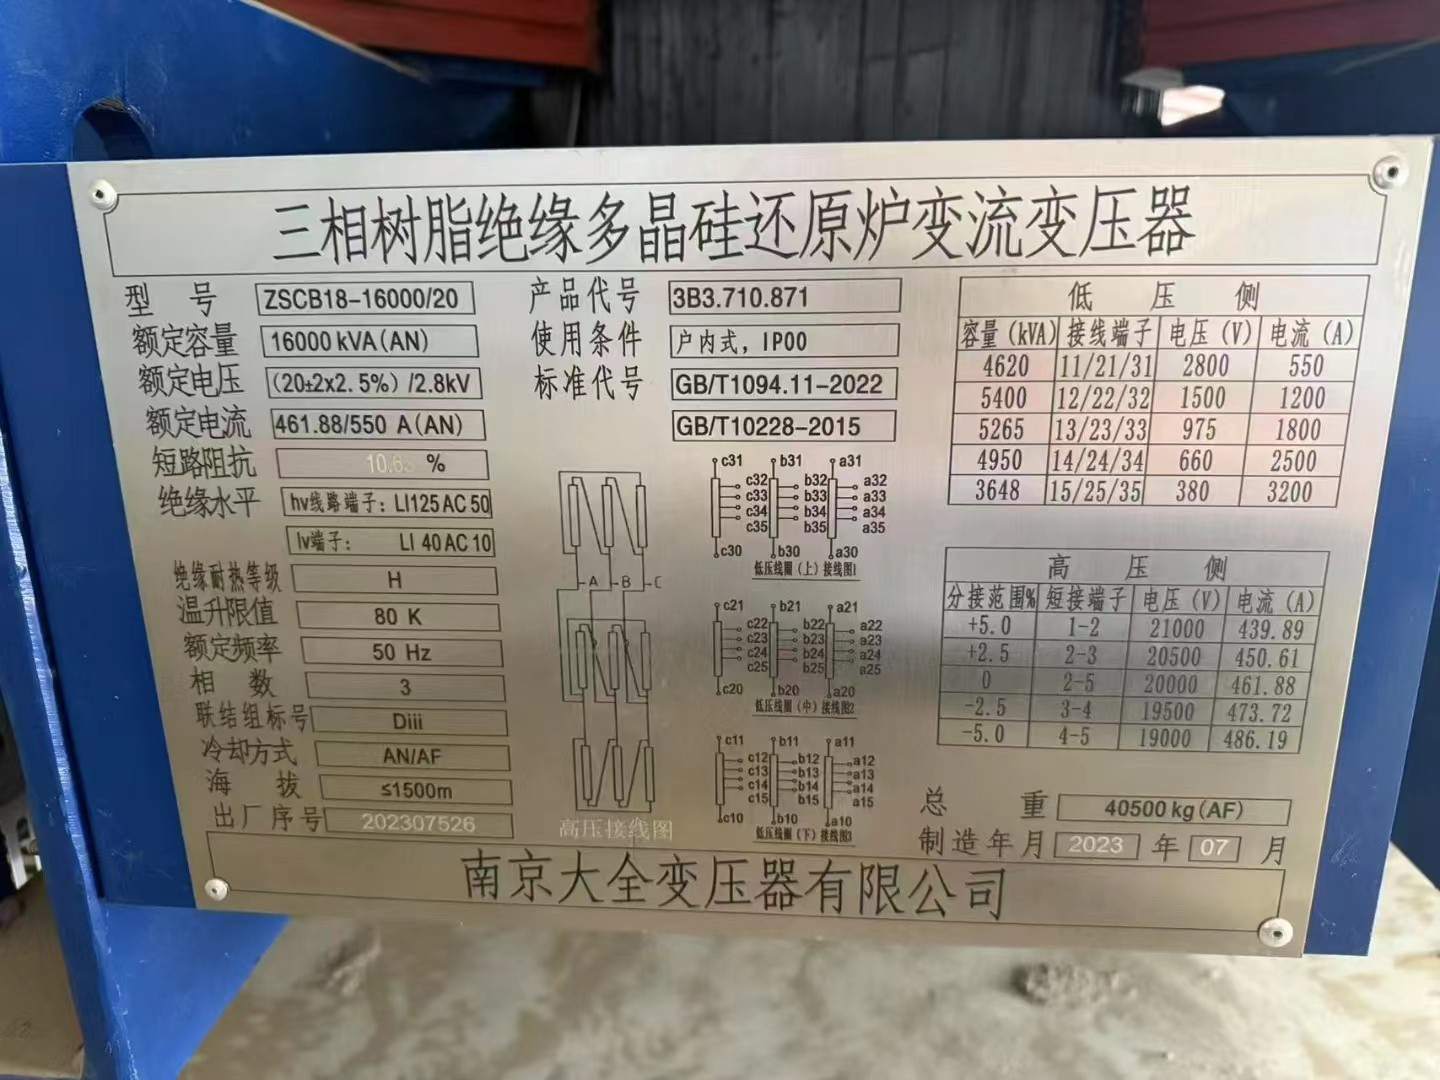 三相树脂绝缘多晶硅还原炉变流变压器
型 号 ZSCB18-16000/20
额定容量 16000 kVA(AN)
额定电压 (20±2x2.5%)/2.8kV
额定电流 461.88/550 A(AN)
短路阻抗 %
绝缘水平 hv线路端子: LI125 AC 50
lv端子: LI 40 AC 10
绝缘耐热等级 H
温升限值 80 K
额定频率 50 Hz
相 数 3
联结组标号 Diii
冷却方式 AN/AF
海 拔 ≤1500m
出厂序号 202307526
产品代号 3B3.710.871
使用条件 户内式, IP00
标准代号 GB/T1094.11-2022
GB/T10228-2015
A B C
高压接线图
c31 b31 a31
c32 b32 a32
c33 b33 a33
c34 b34 a34
c35 b35 a35
c30 b30 a30
低压线圈(上)接线图1
c21 b21 a21
c22 b22 a22
c23 b23 a23
c24 b24 a24
c25 b25 a25
c20 b20 a20
低压线圈(中)接线图2
c11 b11 a11
c12 b12 a12
c13 b13 a13
c14 b14 a14
c15 b15 a15
c10 b10 a10
低压线圈(下)接线图3
低 压 侧
容量(kVA) 接线端子 电压(V) 电流(A)
4620 11/21/31 2800 550
5400 12/22/32 1500 1200
5265 13/23/33 975 1800
4950 14/24/34 660 2500
3648 15/25/35 380 3200
高 压 侧
分接范围% 短接端子 电压(V) 电流(A)
+5.0 1-2 21000 439.89
+2.5 2-3 20500 450.61
0 2-5 20000 461.88
-2.5 3-4 19500 473.72
-5.0 4-5 19000 486.19
总 重 40500 kg(AF)
制造年月 2023 年 07 月
南京大全变压器有限公司